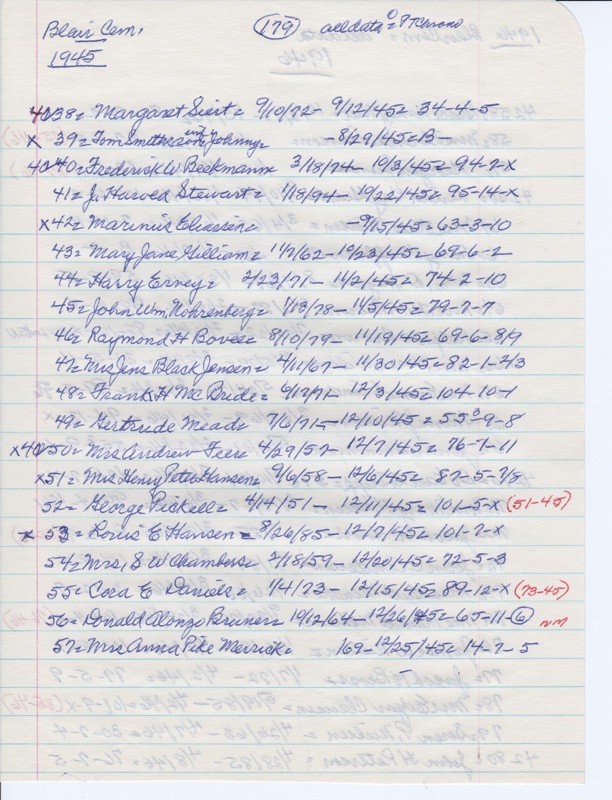 Blair Cem. 179 alldata @ PTChrono
1945
4038= Margaret Siert= 9/10/72- 9/12/45= 34-4-5
x 39= Tom Smith Johnny= -8/29/45=B-
4040= Frederick W Beekmann= 3/18/74- 10/3/45= 94-7-x
41= J. Harold Stewart= 1/18/94- 10/22/45= 95-14-x
x42= Marinus Eliassen= -9/15/45= 63-3-10
43= Mary Jane Gilliam= 11/2/62- 10/23/45= 69-6-2
44= Harry Ervey= 2/23/71- 11/2/45= 74-2-10
45= John Wm. Nohrenberg= 1/13/78- 11/5/45= 79-7-7
46= Raymond H Bovee= 8/10/79- 11/19/45= 69-6-8/9
47= Mrs Jens Black Jensen= 4/11/67- 11/30/45= 82-1-2/3
48= Frank H McBride= 6/17/71- 12/3/45= 104-10-1
49= Gertrude Mead= 7/6/71- 12/10/45= 55-9-8
x4050= Mrs Andrew Feer= 4/29/57- 12/7/45= 76-7-11
x51= Mrs Henry Peter Hansen= 9/6/58- 12/6/45= 87-5-7/8
52= George Pickell= 4/14/51- 12/11/45= 101-5-x (51-45)
x 53= Louis E Hansen= 8/26/85- 12/7/45= 101-7-x
54= Mrs. S W Chambers= 2/18/59- 12/20/45= 72-5-3
55= Cora E Daniels= 1/4/73- 12/15/45= 89-12-x (73-45)
56= Donald Alonzo Bruner= 10/12/64- 12/26/45= 65-11-6 nm
57= Mrs Anna Pike Merrick= 169- 12/25/45= 14-7-5